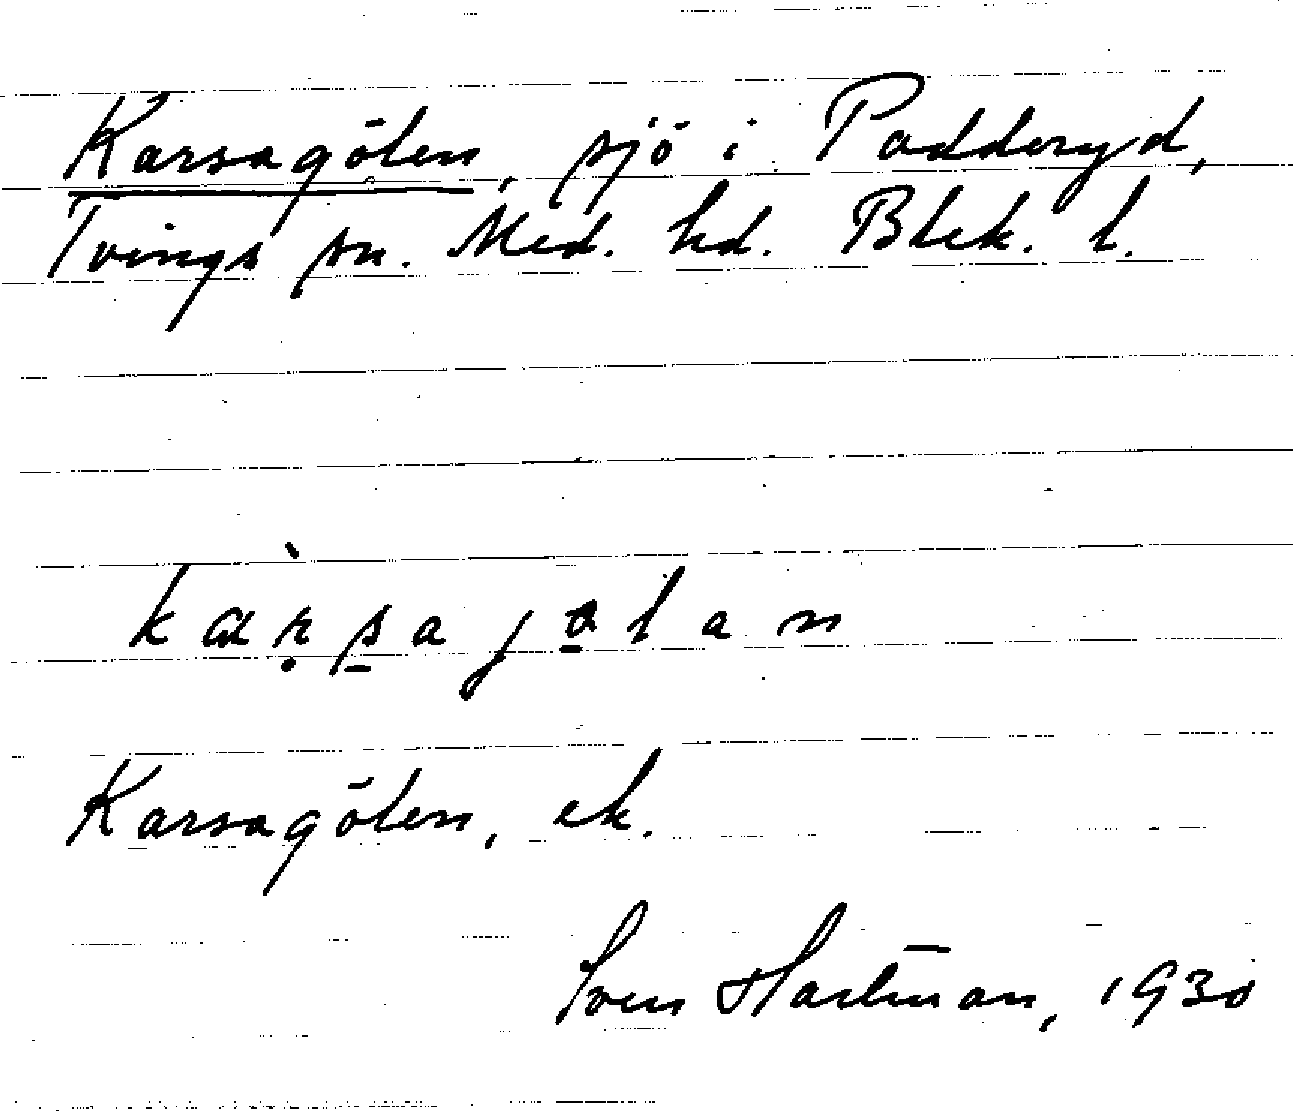 Karsagölen, sjö i Padderyd,
Tvings sn. Med. hd. Blek. l.
Karsagölen, ek.
Sven Hartman, 1930